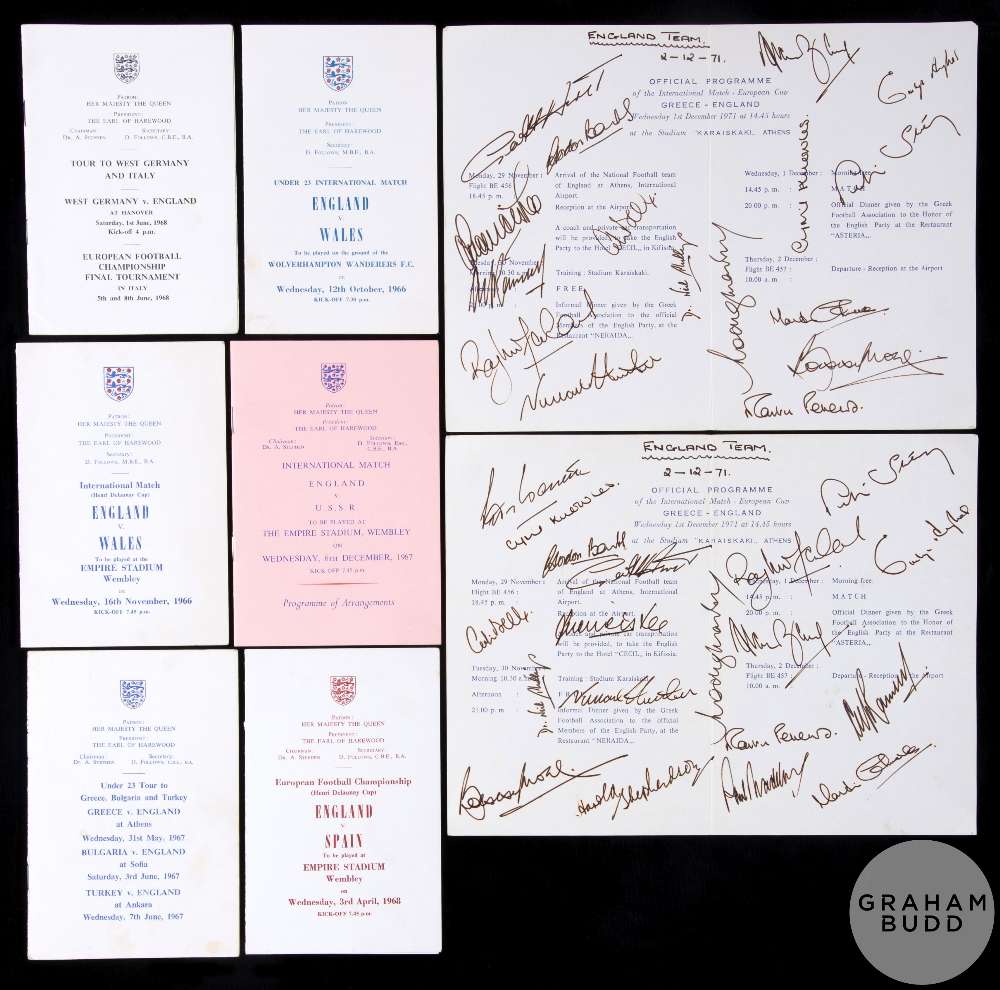 Patron:
HER MAJESTY THE QUEEN
President:
THE EARL OF HAREWOOD
Chairman: Secretary:
Dr. A. Stephen D. Follows, C.B.E., B.A.
TOUR TO WEST GERMANY
AND ITALY
WEST GERMANY v. ENGLAND
AT HANOVER
Saturday, 1st June, 1968
Kick-off 4 p.m.
EUROPEAN FOOTBALL
CHAMPIONSHIP
FINAL TOURNAMENT
IN ITALY
5th and 8th June, 1968
Patron:
HER MAJESTY THE QUEEN
President:
THE EARL OF HAREWOOD
Secretary:
D. Follows, M.B.E., B.A.
UNDER 23 INTERNATIONAL MATCH
ENGLAND
V
WALES
To be played on the ground of the
WOLVERHAMPTON WANDERERS F.C.
on
Wednesday, 12th October, 1966
KICK-OFF 7.30 p.m.
Patron:
HER MAJESTY THE QUEEN
President:
THE EARL OF HAREWOOD
Secretary:
D. Follows, M.B.E., B.A.
International Match
(Henri Delaunay Cup)
ENGLAND
V.
WALES
To be played at the
EMPIRE STADIUM
Wembley
on
Wednesday, 16th November, 1966
KICK-OFF 7.45 p.m.
Patron:
HER MAJESTY THE QUEEN
President:
THE EARL OF HAREWOOD
Chairman: Secretary:
Dr. A. Stephen D. Follows Esq.,
C.B.E., B.A.
INTERNATIONAL MATCH
ENGLAND
v
U.S.S.R
TO BE PLAYED AT
THE EMPIRE STADIUM, WEMBLEY
ON
WEDNESDAY, 6TH DECEMBER, 1967
KICK-OFF 7.45 p.m.
Programme of Arrangements
Patron:
HER MAJESTY THE QUEEN
President:
THE EARL OF HAREWOOD
Chairman: Secretary:
Dr. A. Stephen D. Follows, C.B.E., B.A.
Under 23 Tour to
Greece, Bulgaria and Turkey
GREECE v. ENGLAND
at Athens
Wednesday, 31st May, 1967
BULGARIA v. ENGLAND
at Sofia
Saturday, 3rd June, 1967
TURKEY v. ENGLAND
at Ankara
Wednesday, 7th June, 1967
Patron:
HER MAJESTY THE QUEEN
President:
THE EARL OF HAREWOOD
Chairman: Secretary:
Dr. A. Stephen D. Follows, C.B.E., B.A.
European Football Championship
(Henri Delaunay Cup)
ENGLAND
v
SPAIN
To be played at
EMPIRE STADIUM
Wembley
on
Wednesday, 3rd April, 1968
KICK-OFF 7.45 p.m
ENGLAND TEAM.
2-12-71.
OFFICIAL PROGRAMME
of the International Match - European Cup
GREECE - ENGLAND
Wednesday 1st December 1971 at 14.45 hours
at the Stadium "KARAISKAKI, ATHENS
Gordon Banks
Monday, 29 November : Arrival of the National Football team
Flight BE 456 of England at Athens, International
16.45 p. m. Airport.
Reception at the Airport
A coach and private car transportation
will be provided, to take the English
Party to the Hotel "CECIL, in Kifissia.
Tuesday, 30 November
Morning 10.30 a.m. Training : Stadium Karaiskaki.
FREE
Informal Dinner given by the Greek
Football Association to the official
Members of the English Party, at the
Restaurant "NERAIDA,,
Wednesday, 1 December : Morning free:
14.45 p. m. : MATCH
20.00 p. m. : Official Dinner given by the Greek
Football Association to the Honor of
the English Party at the Restaurant
"ASTERIA,,
Thursday, 2 December :
Flight BE 457 : Departure - Reception at the Airport
10.00 a.m.
Cyril Knowles.
Francis Lee
Norman Hunter
Martin Peters.
ENGLAND TEAM.
2-12-71.
OFFICIAL PROGRAMME
of the International Match - European Cup
GREECE - ENGLAND
Wednesday 1st December 1971 at 14.45 hours
at the Stadium "KARAISKAKI, ATHENS
Cyril Knowles.
Gordon Banks
Monday, 29 November : Arrival of the National Football team
Flight BE 456 of England at Athens, International
16.45 p. m. Airport.
Reception at the Airport.
A coach and private car transportation
will be provided, to take the English
Party to the Hotel "CECIL, in Kifissia
Tuesday, 30 November
Morning 10.30 a.m. : Training : Stadium Karaiskaki.
Afternoon : FREE
21.00 p.m. Informal Dinner given by the Greek
Football Association to the official
Members of the English Party, at the
Restaurant "NERAIDA,,
December : Morning free:
14.45 p.m. : MATCH
Official Dinner given by the Greek
Football Association to the Honor of
the English Party at the Restaurant
"ASTERIA,,
Thursday, 2 December
Flight BE 457 : Departure - Reception at the Airport
10.00 a.m.
Francis Lee
Norman Hunter
Martin Peters.
Harold Shepherdson
GRAHAM
BUDD